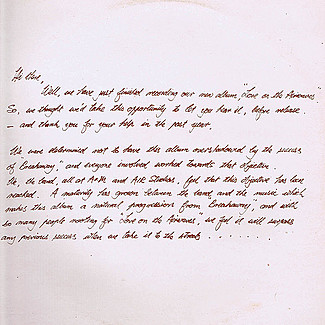 Hi there,
Well, we have just finished recording our new album, "Love on the Airwaves"
So, we thought we'd take this opportunity to let you hear it, before release
- and thank you for your help in the past year.
We were determined not to have this album overshadowed by the success
of "Breakaway," and everyone involved worked towards that objective.
We, the band, all at A&M and Air Studios, feel that this objective has been
reached. A maturity has grown between the band and the music which
makes this album a natural progression from "Breakaway," and with
so many people rooting for "Love on the Airwaves," we feel it will surpass
any previous success when we take it to the streets . . . . . . .